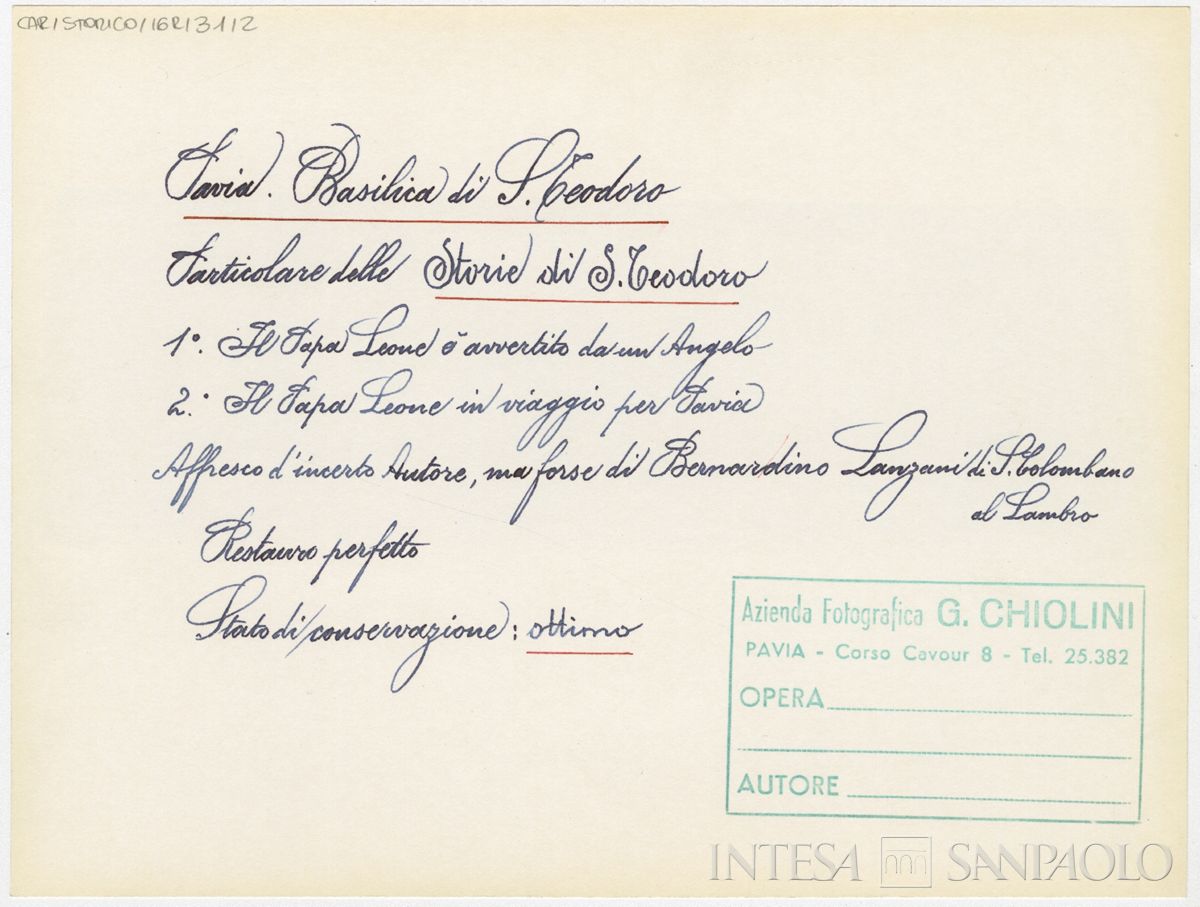 CAR/STORICO/16R/31/2
Pavia. Basilica di S. Teodoro
Particolare delle Storie di S. Teodoro
1°. Il Papa Leone è avvertito da un Angelo
2.° Il Papa Leone in viaggio per Pavia
Affresco d'incerto Autore, ma forse di Bernardino Lanzani di S. Colombano
al Lambro
Restauro perfetto
Stato di conservazione: ottimo
Azienda Fotografica G. CHIOLINI
PAVIA - Corso Cavour 8 - Tel. 25.382
OPERA
AUTORE
INTESA SANPAOLO